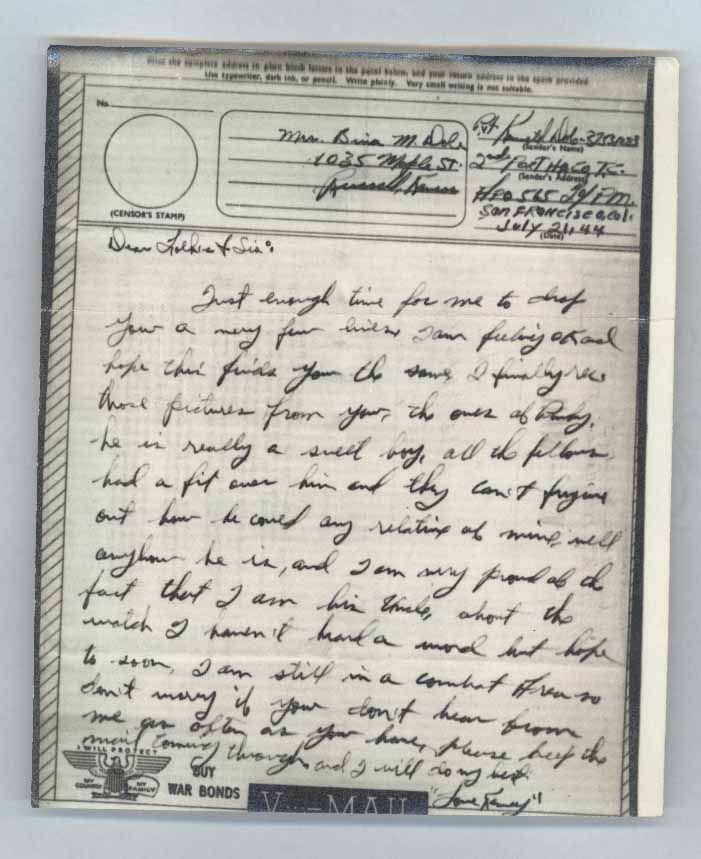 Print the complete address in plain block letters in the panel below, and your return address in the space provided.
Use typewriter, dark ink, or pencil. Write plainly. Very small writing is not suitable.
No.
(CENSOR'S STAMP)
Mrs Bina M. Dole
1035 Maple St.
Russell, Kansas
Pvt Kenneth Dole
(Sender's Name)
2nd Port Hq. Co. T.C.
(Sender's Address)
APO 565 % P.M.
San Francisco, Cal.
July 21, 44
(Date)
Dear Folks & Sis:
Just enough time for me to drop
you a very few lines. I am feeling OK and
hope this finds you the same, I finally rec
those pictures from you, the ones of
he is really a sweet boy, all the fellows
had a fit over him and they can't figure
out how he could any relative of mine, well
anyhow he is, and I am very proud of the
fact that I am his Uncle, about the
watch I haven't heard a word but hope
to soon, I am still in a combat Area so
don't worry if you don't hear from
me as often as you have, please keep the
mail coming through and I will do my best
"Love Kenny"
I WILL PROTECT
MY COUNTRY
MY FAMILY
BUY
WAR BONDS
V--MAIL